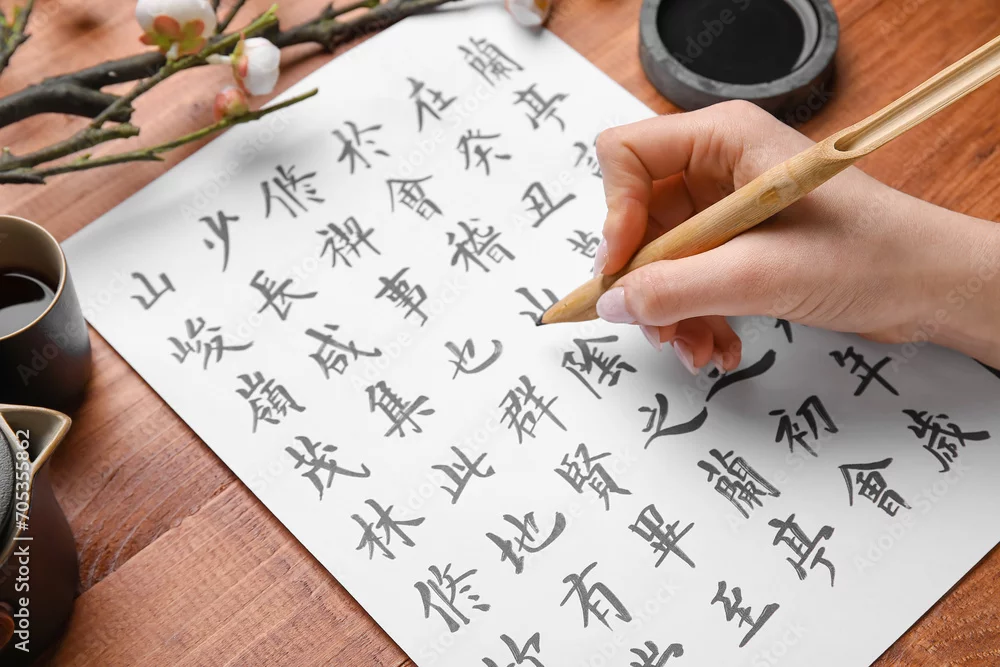 蘭亭年歲
在癸丑之初會
於會稽山陰之蘭亭
修禊事也群賢畢至
少長咸集此地有
山峻嶺茂林修
Adobe Stock | #705355862